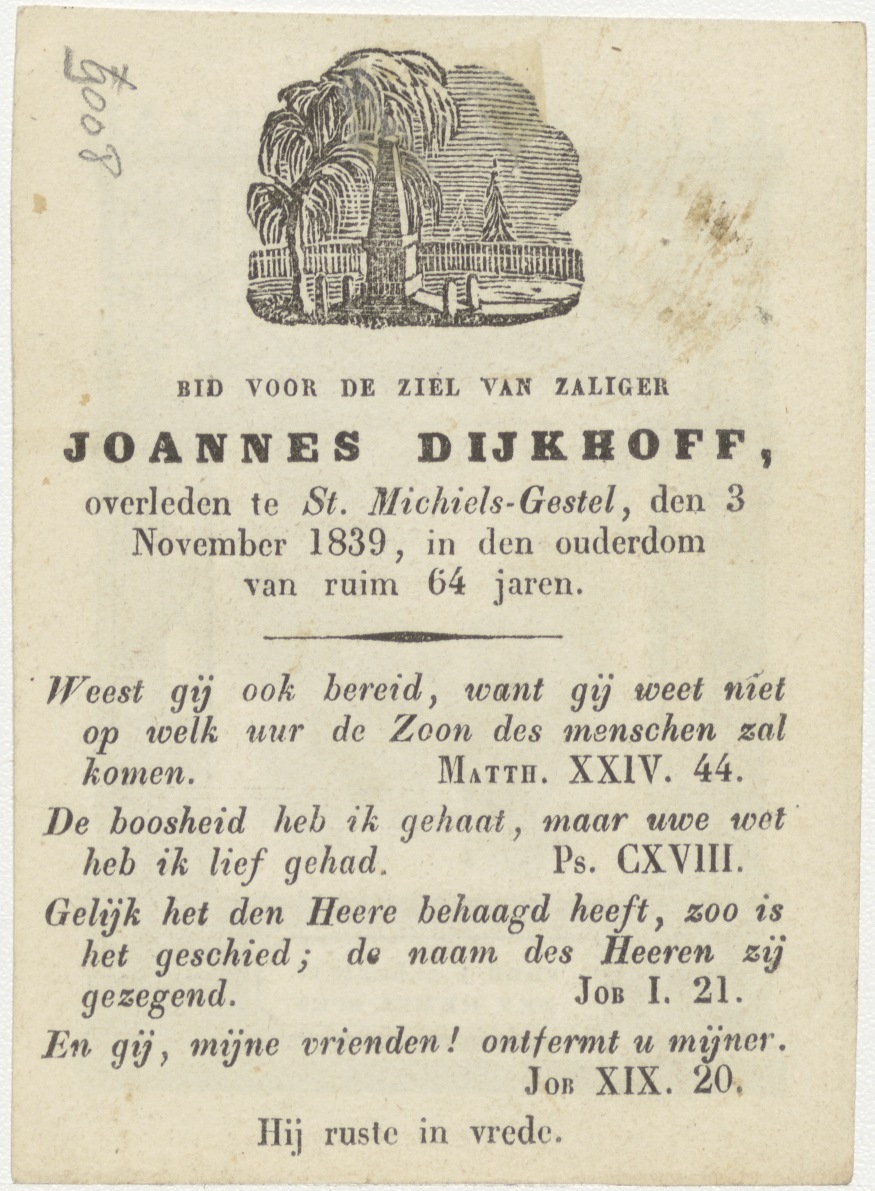 BID VOOR DE ZIEL VAN ZALIGER
JOANNES DIJKHOFF,
overleden te St. Michiels-Gestel, den 3
November 1839, in den ouderdom
van ruim 64 jaren.
Weest gij ook bereid, want gij weet niet
op welk uur de Zoon des menschen zal
komen. MATTH. XXIV. 44.
De boosheid heb ik gehaat, maar uwe wet
heb ik lief gehad. Ps. CXVIII.
Gelijk het den Heere behaagd heeft, zoo is
het geschied; de naam des Heeren zij
gezegend. JOB I. 21.
En gij, mijne vrienden! ontfermt u mijner.
JOB XIX. 20.
Hij ruste in vrede.